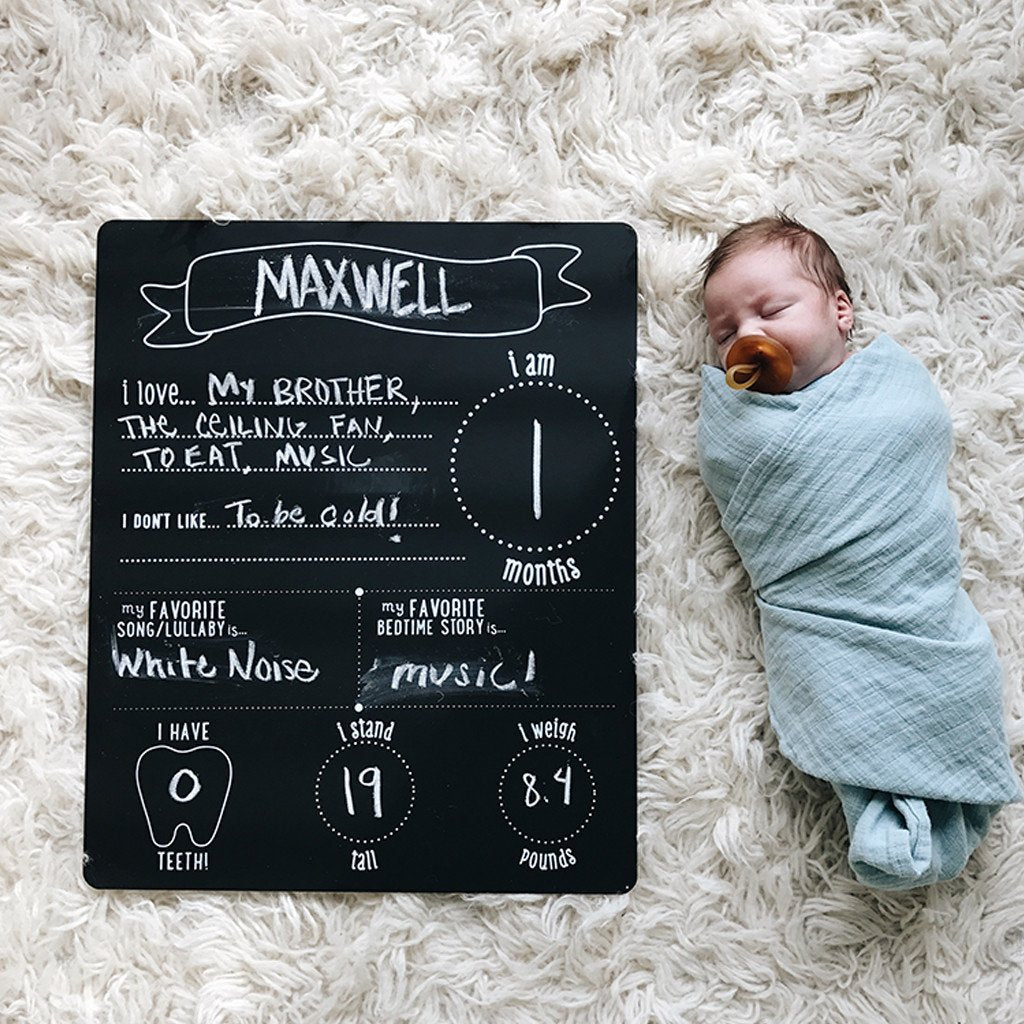 MAXWELL
i love... My BROTHER,
THE CEILING FAN,
TO EAT, MUSIC
I DON'T LIKE... To be cold!
i am
1
months
my FAVORITE
SONG/LULLABY is...
White Noise
my FAVORITE
BEDTIME STORY is...
music!
I HAVE
0
TEETH!
i stand
19
tall
i weigh
8.4
pounds